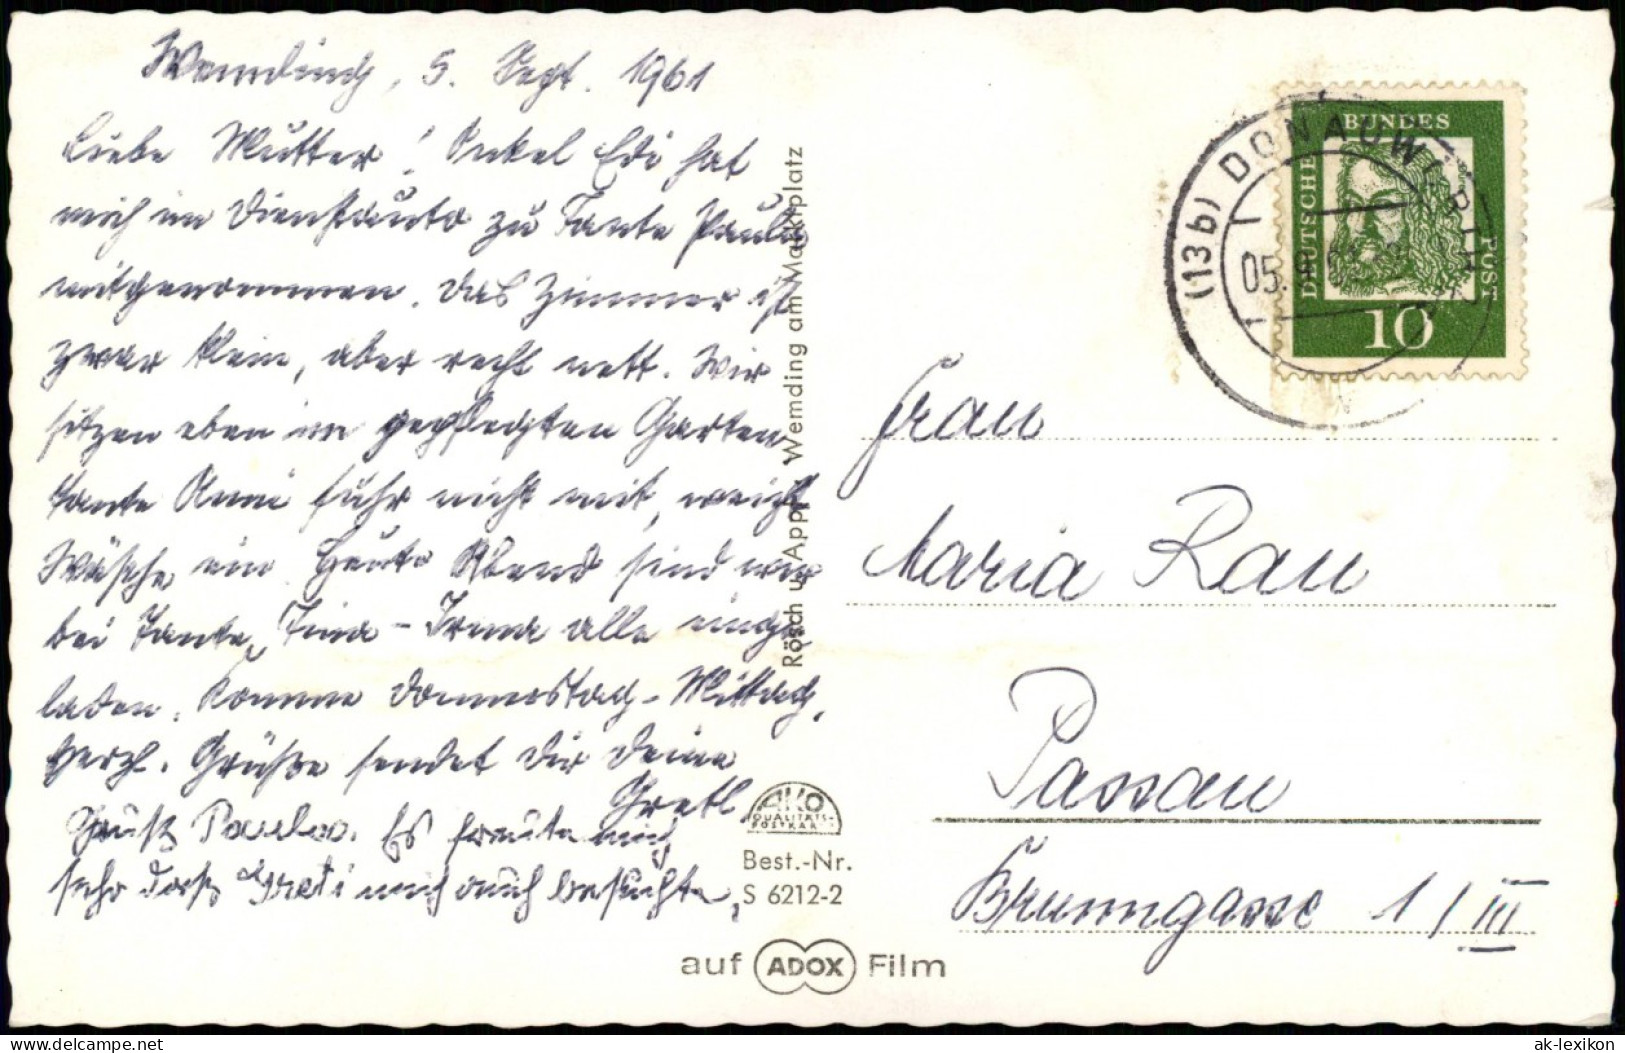 Wemding, 5. Sept. 1961
Liebe Mutter! Onkel Edi hat
mich im Dienstauto zu Tante Paula
mitgenommen. Das Zimmer ist
zwar klein, aber recht nett. Wir
sitzen eben im gepflegten Garten
Tante Anni fuhr nicht mit, weicht
Wäsche ein. Heute Abend sind wir
bei Tante Tina - Irma alle einge
laden. Komme Donnerstag-Mittag,
Herzl. Grüße sendet Dir Deine
Gretl.
Gruß Paula. Es freute mich
sehr daß Gretl mich auch besuchte,
Rösch u. Appl Wemding am Marktplatz
AKO
QUALITÄTS-
POSTKARTE
Best.-Nr.
S 6212-2
auf ADOX Film
(13b) DONAUWÖRTH 2
05.9.61
DEUTSCHE
BUNDES
POST
10
Frau
Maria Rau
Passau
Brunngasse 1/III
ak-lexikon.de
ak-lexikon